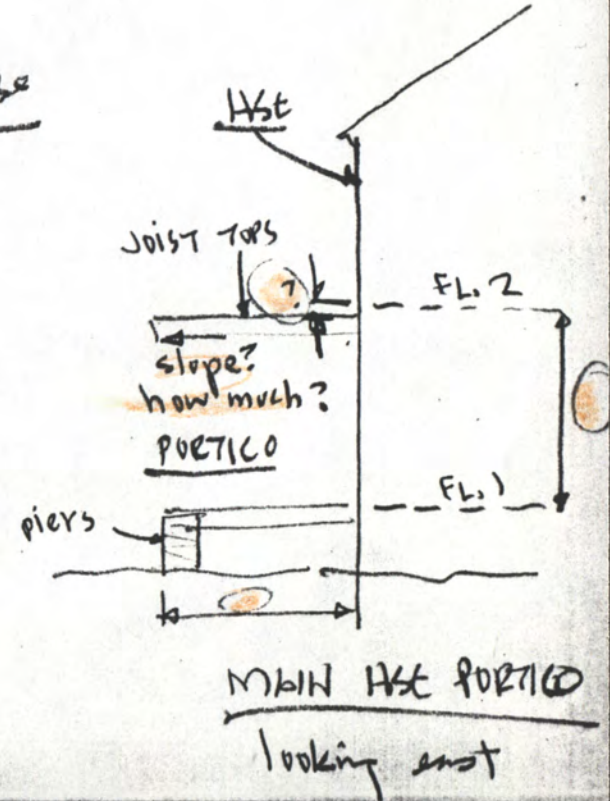 HSE
JOIST TOPS
?
FL. 2
slope?
how much?
PORTICO
FL. 1
piers
MAIN HSE PORTICO
looking east